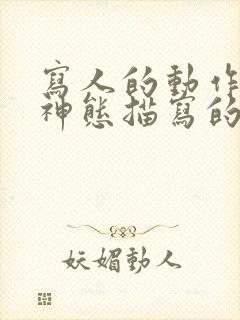 寫人的動作
神態描寫的
妖媚動人